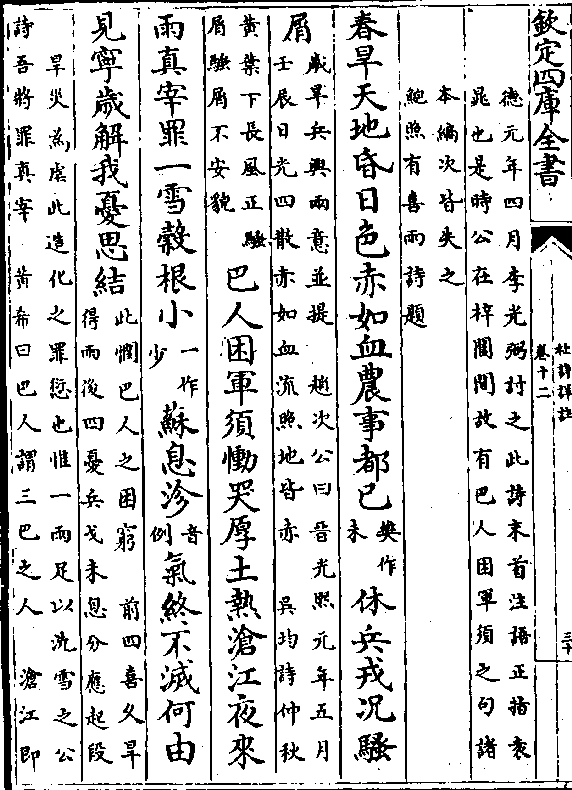 欽定四庫全書
杜詩詳註
卷十二
三十
德元年四月李光弼討之此詩末首注語正指袁
晁也是時公在梓閬間故有巴人困軍須之句諸
本編次皆失之
鮑照有喜雨詩題
春旱天地昏日色赤如血農事都已樊作未休兵戎況騷
屑歲旱兵興兩意並提 趙次公曰晉光熙元年五月
壬辰日光四散赤如血流照地皆赤 吳均詩仲秋
黄葉下長風正騷
屑騷屑不安貌巴人困軍須慟哭厚土熱滄江夜來
雨真宰罪一雪榖根小一作少蘇息沴音例氣終不滅何由
見寧歲解我憂思結此憫巴人之困窮 前四喜久旱
得雨後四憂兵戈未息分應起段
旱災為虐此造化之罪愆也惟一雨足以洗雪之公
詩吾將罪真宰 黄希曰巴人謂三巴之人 滄江即